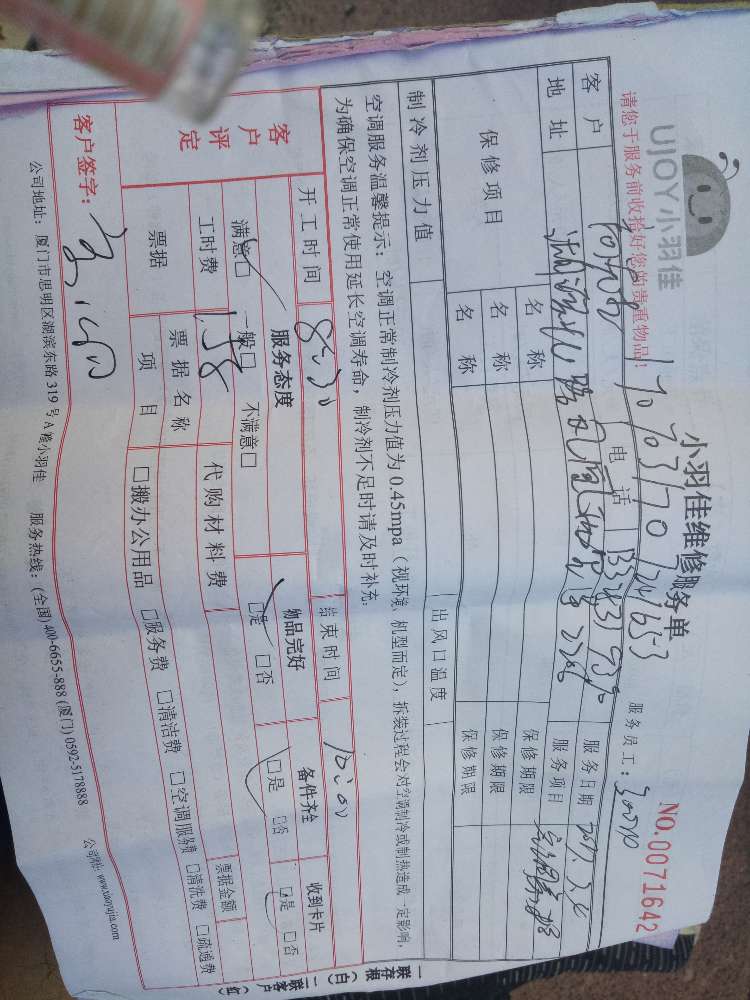 UJOY小羽佳
小羽佳维修服务单
NO.0071642
请您于服务前收拾好您的贵重物品！
服务员工：
客户 电话 服务日期
地址 服务项目
保修项目 名称 保修期限
名称 保修期限
名称 保修期限
制冷剂压力值 出风口温度
空调服务温馨提示：空调正常制冷剂压力值为0.45mpa（视环境、机型而定），拆装过程会对空调制冷或制热造成一定影响，
为确保空调正常使用延长空调寿命，制冷剂不足时请及时补充。
客户评定 开工时间 8:30 结束时间 10:00
服务态度 物品完好 备件齐全 收到卡片
满意□ 一般□ 不满意□ □是 □否 □是 □否 □是 □否
工时费 158 代购材料费
票据 票据名称 票据金额
项目 □搬办公用品 □服务费 □清洁费 □空调服务费 □清洗费 □疏通费
客户签字：
公司地址：厦门市思明区湖滨东路319号A楼小羽佳 服务热线：(全国)400-6655-888 (厦门)0592-5178888 公司网址：www.xiaoyujia.com
一联存根（白）二联客户（红）